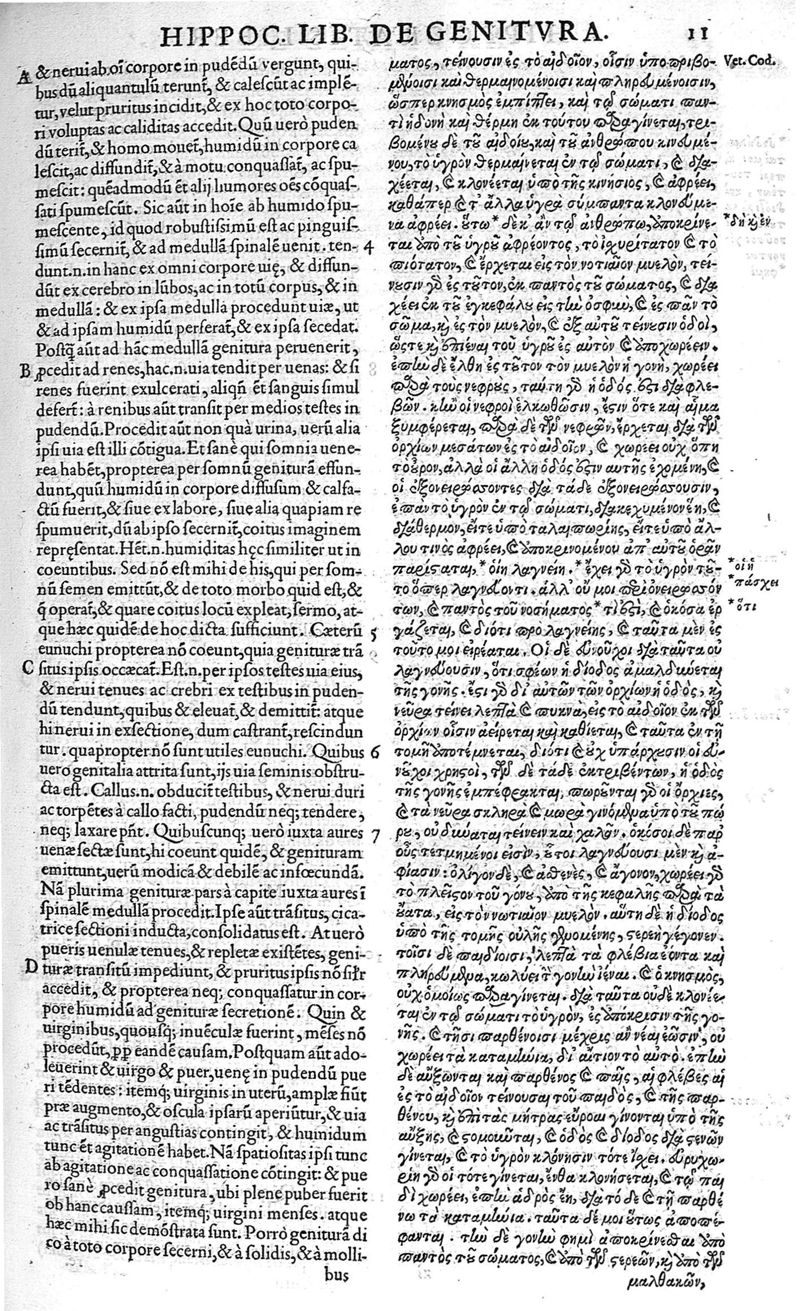 HIPPOC. LIB. DE GENITVRA. 11
A & nerui ab oī corpore in pudēdū vergunt, qui-
bus dū aliquantulū terunt̄, & calescūt ac implē-
tur, velut pruritus incidit, & ex hoc toto corpo-
ri voluptas ac caliditas accedit. Quū uerò puden
dū terit̄, & homo mouet̄, humidū in corpore ca
lescit, ac diffundit̄, & à motu conquassat̄, ac spu-
mescit: quēadmodū ēt alij humores oēs cōquas-
sati spumescūt. Sic aūt in hoīe ab humido spu-
mescente, id quod robustissimū est ac pinguis-
simū secernit̄, & ad medullā spinalē uenit. ten- 4
dunt.n. in hanc ex omni corpore uię, & diffun-
dūt ex cerebro in lūbos, ac in totū corpus, & in
medullā: & ex ipsa medulla procedunt uiæ, ut
& ad ipsam humidū perferat̄, & ex ipsa secedat.
Postq̄ aūt ad hāc medullā genitura peruenerit,
B ꝓcedit ad renes, hac.n. uia tendit per uenas: & si
renes fuerint exulcerati, aliqn̄ ēt sanguis simul
defert̄: à renibus aūt transit per medios testes in
pudendū. Procedit aūt non quà urina, uerū alia
ipsi uia est illi cōtigua. Et sanè qui somnia uene-
rea habēt, propterea per somnū geniturā effun-
dunt, quū humidū in corpore diffusum & calfa-
ctū fuerit, & siue ex labore, siue alia quapiam re
spumuerit, dū ab ipso secernit̄, coitus imaginem
repręsentat. Hēt.n. humiditas hęc similiter ut in
coeuntibus. Sed nō est mihi de his, qui per som-
nū semen emittūt, & de toto morbo quid est, &
q̄ operat̄, & quare coitus locū expleat, sermo, at-
que hæc quidē de hoc dicta sufficiunt. Cæterū 5
eunuchi propterea nō coeunt, quia genituræ trā
C situs ipsis occæcat̄. Est.n. per ipsos testes uia eius,
& nerui tenues ac crebri ex testibus in puden-
dū tendunt, quibus & eleuat̄, & demittit̄: atque
hi nerui in exsectione, dum castrant̄, rescindun
tur. quapropter nō sunt utiles eunuchi. Quibus 6
uero genitalia attrita sunt, ijs uia seminis obstru-
cta est. Callus.n. obducit̄ testibus, & nerui duri
ac torpētes à callo facti, pudendū neq; tendere,
neq; laxare pn̄t. Quibuscunq; uerò iuxta aures 7
uenæ sectæ sunt, hi coeunt quidē, & genituram
emittunt, uerū modicā & debilē ac infœcundā.
Nā plurima genituræ pars à capite iuxta aures ī
spinalē medullā procedit. Ipse aūt trāsitus, cica-
trice sectioni inducta, consolidatus est. At uerò
pueris uenulæ tenues, & repletæ existētes, geni-
D turæ transitū impediunt, & pruritus ipsis nō sil̄r
accedit, & propterea neq; conquassatur in cor-
pore humidū ad genituræ secretionē. Quin &
uirginibus, quousq; inuēculæ fuerint, mēses nō
procedūt, pp̄ eandē causam. Postquam aūt ado-
leuerint & uirgo & puer, uenę in pudendū pue
ri tēdentes: itemq; uirginis in uterū, amplæ fiūt
præ augmento, & oscula ipsarū aperiūtur, & uia
ac trāsitus per angustias contingit, & humidum
tunc ēt agitationē habet. Nā spatiositas ipsi tunc
ab agitatione ac conquassatione cōtingit: & pue
ro sanè ꝓcedit genitura, ubi plene puber fuerit
ob hanc caussam, itemq; uirgini menses. atque
hæc mihi sic demōstrata sunt. Porrò geniturā di
co à toto corpore secerni, & à solidis, & à molli-
bus
ματος, τείνουσιν ἐς τὸ αἰδοῖον, οἷσιν ὑποτριβο- Vet. Cod.
μένοισι καὶ θερμαινομένοισι καὶ πληρουμένοισιν,
ὥσπερ κνησμὸς ἐμπίπτει, καὶ τῷ σώματι παν-
τὶ ἡδονὴ καὶ θέρμη ἐκ τούτου παραγίνεται, τρι-
βομένου δὲ τοῦ αἰδοίου, καὶ τοῦ ἀνθρώπου κινουμέ-
νου, τὸ ὑγρὸν θερμαίνεται ἐν τῷ σώματι, καὶ δια-
χέεται, καὶ κλονέεται ὑπὸ τῆς κινήσιος, καὶ ἀφρέει,
καθάπερ καὶ τ᾽ ἄλλα ὑγρὰ σύμπαντα κλονούμε-
να ἀφρέει. οὕτω * δὲ κ᾽ ἂν τῷ ἀνθρώπῳ, ὑποκρίνε- * δὴ κ̀ ἐν
ται ἀπὸ τοῦ ὑγροῦ ἀφρέοντος, τὸ ἰσχυρότατον καὶ τὸ
πιότατον, καὶ ἔρχεται εἰς τὸν νοτιαῖον μυελόν, τεί-
νουσιν γὰρ ἐς τοῦτον, ἐκ παντὸς τοῦ σώματος, καὶ δια
χέει ἐκ τοῦ ἐγκεφάλου εἰς τὴν ὀσφύν, καὶ ἐς πᾶν τὸ
σῶμα, καὶ ἐς τὸν μυελόν, καὶ ἐξ αὐτοῦ τείνουσιν ὁδοὶ,
ὥστε καὶ ἐπιέναι τοῦ ὑγροῦ ἐς αὐτὸν καὶ ὑποχωρέειν.
ἐπὴν δὲ ἔλθῃ ἐς τοῦτον τὸν μυελὸν ἡ γονὴ, χωρέει
παρὰ τοὺς νεφροὺς, ταύτῃ γὰρ ἡ ὁδός ἐστι διὰ φλε-
βῶν. κἢν οἱ νεφροὶ ἑλκωθῶσιν, ἔστιν ὅτε καὶ αἷμα
ξυμφέρεται, παρὰ δὲ τῶν νεφρῶν, ἔρχεται διὰ τῶν
ὀρχίων μεσάτων ἐς τὸ αἰδοῖον, καὶ χωρέει οὐχ ὅπη
τὸ οὖρον, ἀλλὰ οἱ ἄλλη ὁδός ἐστιν αὐτῆς ἐχομένη, καὶ
οἱ ἐξονειρώσοντες διὰ τάδε ἐξονειρώσουσιν,
ἐπὰν τὸ ὑγρὸν ἐν τῷ σώματι, διακεχυμένον ἔῃ, καὶ
διάθερμον, εἴτε ὑπὸ ταλαιπωρίης, εἴτε ὑπὸ ἄλ-
λου τινὸς ἀφρέει, καὶ ὑποκρινομένου ἀπ᾽ αὐτοῦ ὁρᾶν
παρίσταται, * οἵη λαγνείη. * ἔχει γὰρ τὸ ὑγρὸν τοῦ- * οἱ ἡ
το ὅπερ λαγνεύοντι. ἀλλ᾽ οὔ μοι περὶ ὀνειρωσσόν * πάσχει
των, καὶ παντὸς τοῦ νοσήματος * τί ἐστι, καὶ ὁκόσα ἐρ * ὅτι
γάζεται, καὶ διότι πρὸ λαγνείης, καὶ ταῦτα μὲν ἐς
τοῦτό μοι εἰρέαται. Οἱ δὲ εὐνοῦχοι διὰ ταῦτα οὐ
λαγνεύουσιν, ὅτι σφέων ἡ δίοδος ἀμαλδύνεται
τῆς γονῆς. ἔστι γὰρ δι᾽ αὐτῶν τῶν ὀρχίων ἡ ὁδός, καὶ
νεῦρα τείνει λεπτὰ καὶ πυκνὰ, εἰς τὸ αἰδοῖον ἐκ τῶν
ὀρχίων οἷσιν ἀείρεται καὶ καθίεται, καὶ ταῦτα ἐν τῇ
τομῇ ὑποτέμνεται, διότι οὐχ ὑπάρχουσιν οἱ εὐ-
νοῦχοι χρηστοὶ, τῶν δὲ τάδε ἐκτριβέντων, ἡ ὁδὸς
τῆς γονῆς ἐμπέφρακται, πωροῦνται γὰρ οἱ ὄρχιες,
καὶ τὰ νεῦρα σκληρὰ καὶ μωρὰ γινόμενα ὑπὸ τοῦ πώ
ρου, οὐ δύναται τείνειν καὶ χαλᾶν. ὁκόσοι δὲ παρ᾽
οὖς τετμημένοι εἰσὶν, οὗτοι λαγνεύουσι μὲν καὶ ἀ-
φιᾶσιν: ὀλίγον δὲ, καὶ ἀσθενὲς, καὶ ἄγονον, χωρέει γὰρ
τὸ πλεῖστον τοῦ γόνου, ὑπὸ τῆς κεφαλῆς παρὰ τὰ
οὔατα, εἰς τὸν νωτιαῖον μυελόν. αὕτη δὲ ἡ δίοδος
ὑπὸ τῆς τομῆς οὐλῆς γενομένης, στερεὴ γέγονεν.
τοῖσι δὲ παιδίοισι, λεπτὰ τὰ φλέβια ἐόντα καὶ
πληρούμενα, κωλύει τὴν γονὴν ἰέναι. καὶ ὁ κνησμὸς,
οὐχ ὁμοίως παραγίνεται. διὰ ταῦτα οὐδὲ κλονέε-
ται ἐν τῷ σώματι τὸ ὑγρὸν, ἐς ὑπόκρισιν τῆς γο-
νῆς. καὶ τῇσι παρθένοισι μέχρις ἂν νέαι ἐῶσιν, οὐ
χωρέει τὰ καταμήνια, δι᾽ αἴτιον τὸ αὐτὸ. ἐπὴν
δὲ αὔξωνται καὶ παρθένος καὶ παῖς, αἱ φλέβες αἱ
ἐς τὸ αἰδοῖον τείνουσαι τοῦ παιδὸς, καὶ τῆς παρ-
θένου, καὶ ἐπὶ τὰς μήτρας εὔροαι γίνονται ὑπὸ τῆς
αὔξης, καὶ στομοῦται, καὶ ὁδὸς καὶ δίοδος διὰ στενῶν
γίνεται, καὶ τὸ ὑγρὸν κλόνησιν τότε ἴσχει. εὐρυχω-
ρίη γὰρ οἱ τότε γίνεται, ἔνθα κλονήσεται, καὶ τῷ παι
δὶ χωρέει, ἐπὴν ἁδρὸς ἔῃ, διὰ τόδε καὶ τῇ παρθέ
νῳ τὰ καταμήνια. ταῦτα δέ μοι οὕτως ἀποπέ-
φανται. τὴν δὲ γονὴν φημὶ ἀποκρίνεσθαι ἀπὸ
παντὸς τοῦ σώματος, καὶ ἀπὸ τῶν στερεῶν, καὶ ἀπὸ τῶν
μαλθακῶν,